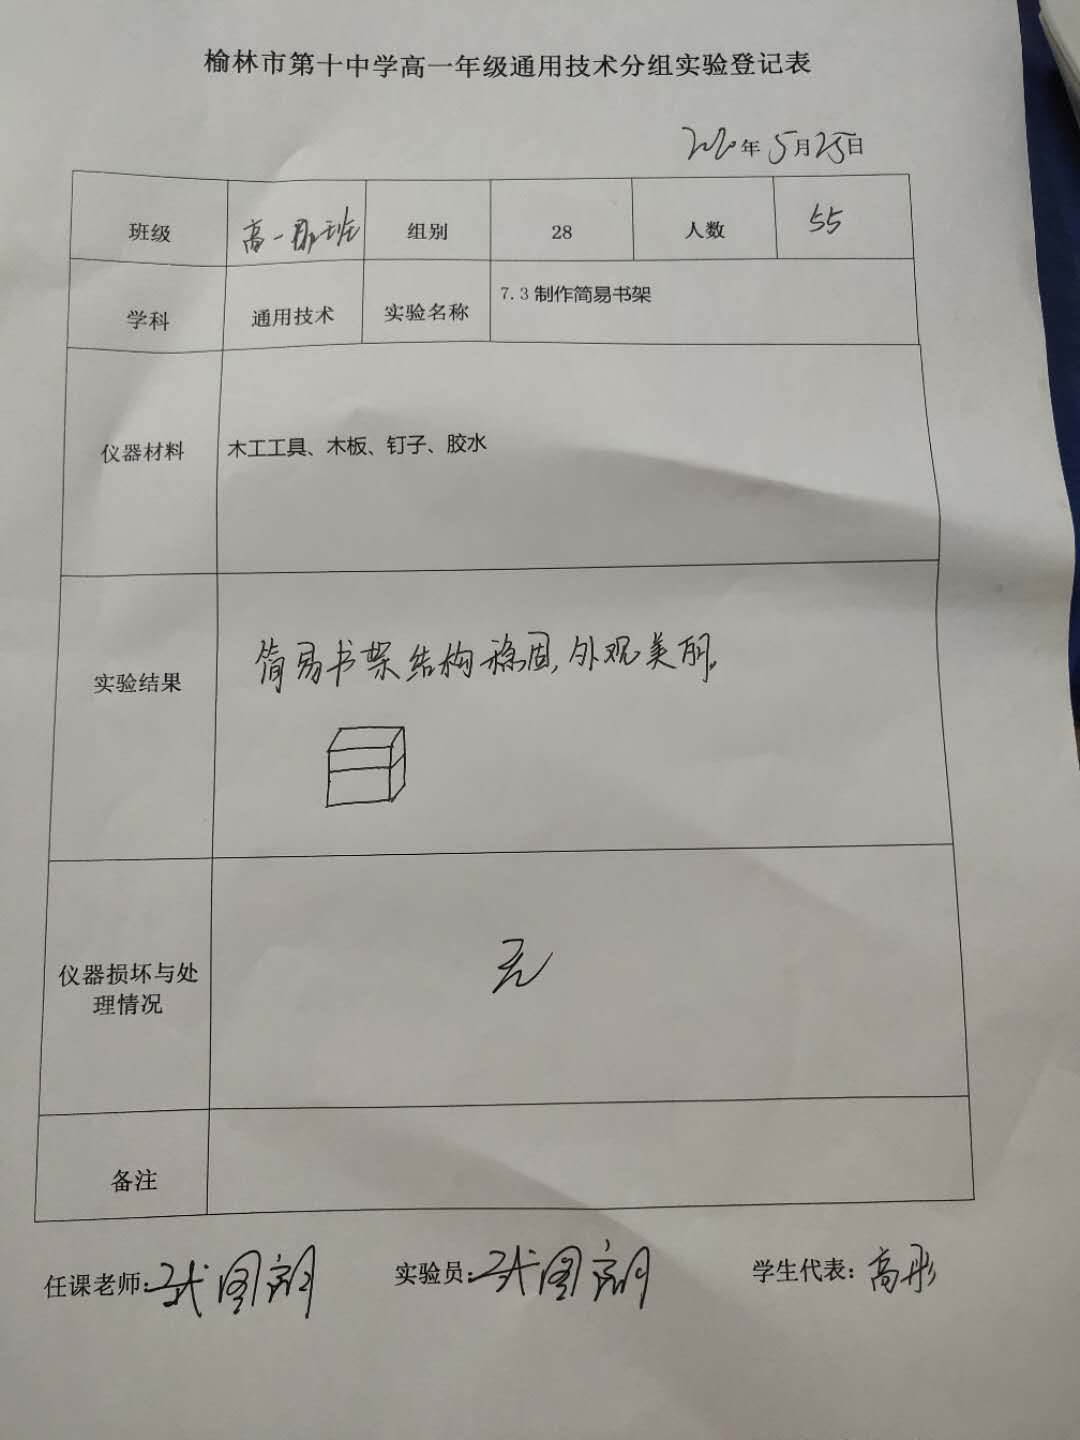 榆林市第十中学高一年级通用技术分组实验登记表
2020年5月25日
班级 高一 班 组别 28 人数 55
学科 通用技术 实验名称 7.3制作简易书架
仪器材料 木工工具、木板、钉子、胶水
实验结果 简易书架结构稳固,外观美丽。
仪器损坏与处
理情况 无
备注
任课老师: 实验员: 学生代表:高彤